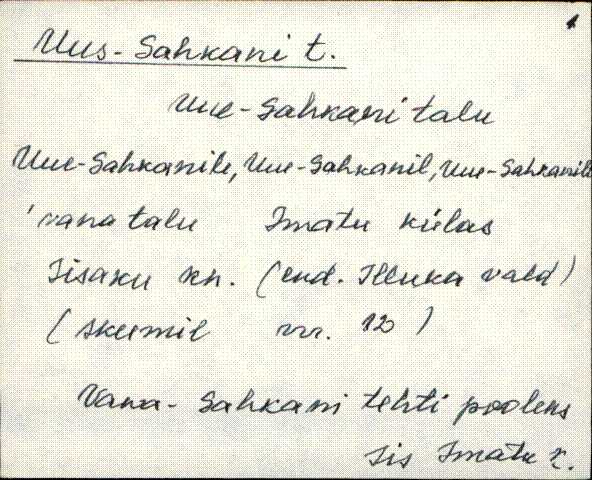 1
Uus-Sahkani t.
Uue-Sahkani talu
Uue-Sahkanile, Uue-Sahkanil, Uue-Sahkanilt
'vana talu Imatu külas
Iisaku khn. (end. Illuka vald)
(skeemil nr. 12)
Vana-Sahkani tehti pooleks
Iis Imatu k.